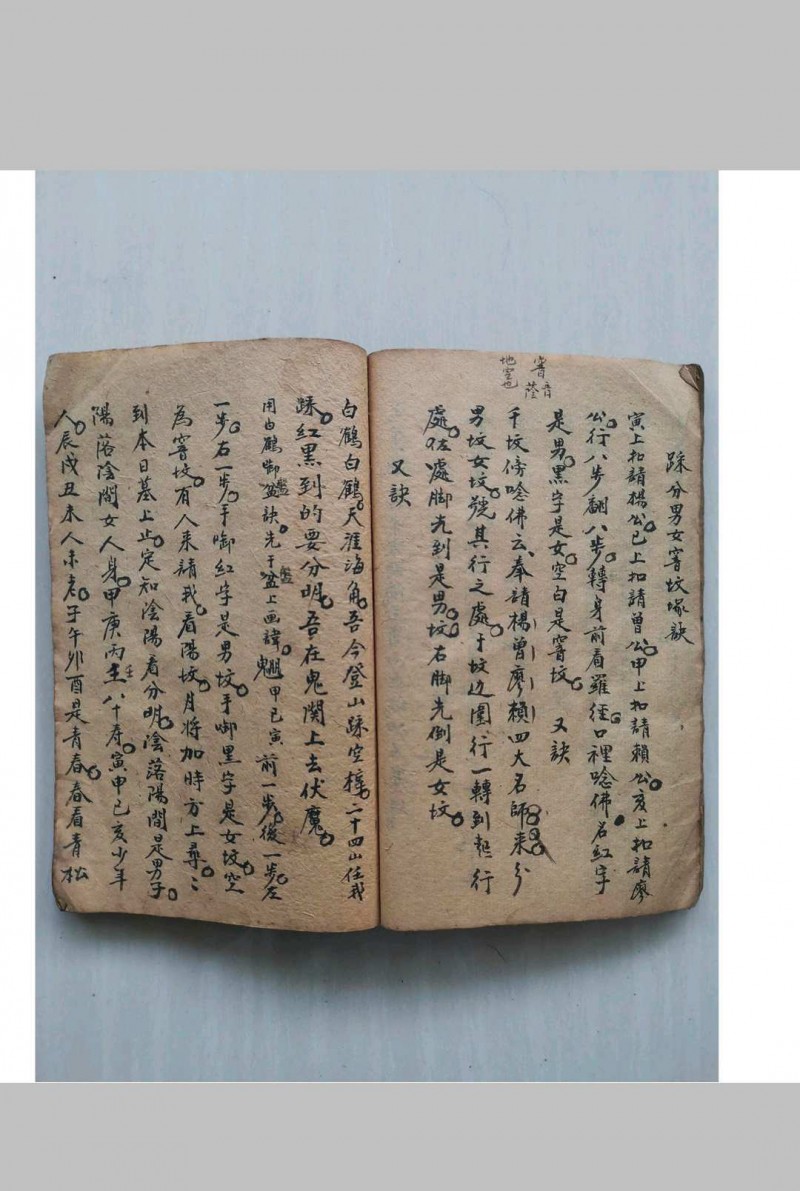 踩分男女窨坟塚訣
寅上扣請楊公巳上扣請曾公甲上扣請賴公亥上扣請廖
公行八步翻八步轉身前看羅經口裡唸佛名紅字
是男黑字是女空白是窨坟 又訣
于坟傍唸佛云奉請楊曾廖賴四大名師来分
男坟女坟號其行之處于坟边圍行一轉到起行
處左處脚先到是男坟右脚先倒是女坟
又訣
窨音蔭
地空也
白鶴白鶴天涯海角吾今登山踩空槨二十四山任我
踩紅黑到的要分明吾在鬼関上去伏魔
用白鶴啣盆訣先于盆上画諱 甲巳寅前一步後一步左
盤
盤
一步右一步手啣紅字是男坟手啣黑字是女坟空
為窨坟有人来請我看陽坟月將加時方上尋〻
到本日墓上止定知陰陽看分明陰落陽間是男子
陽落陰間女人身甲庚丙壬八十寿寅甲巳亥少年
壬
人辰戌丑未人未老子午卯酉是青春春看青松